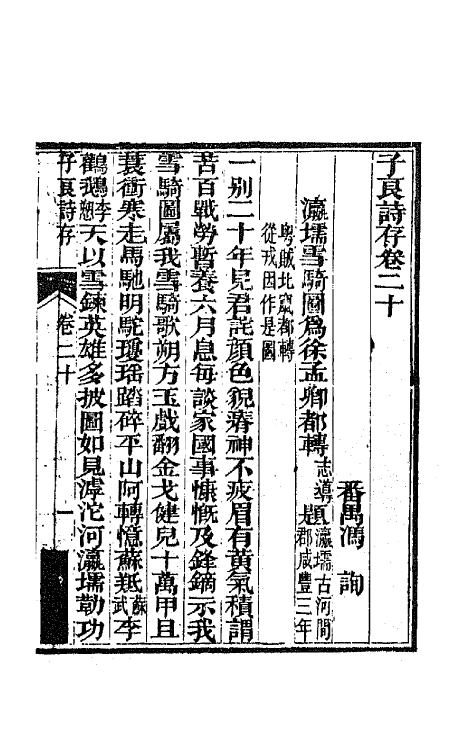 子良詩存卷二十
番禺馮詢
瀛壖雪騎圖爲徐孟卿都轉志導題瀛壖古河間郡咸豐三年
粤賊北竄都轉從戎因作是圖
一别二十年見君詫顔色貌瘠神不疲眉有黄氣積謂
苦百戰勞暫養六月息每談家國事慷慨及鋒鏑示我
雪騎圖屬我雪騎歌朔方玉戲翻金戈健兒十萬甲且
蓑衝寒走馬馳明駝瓊瑶踏碎平山阿轉憶蘇羝蘇武李
鸛鵝李愬天以雪鍊英雄多披圖如見滹沱河瀛壖勒功
子良詩存
卷二十
一